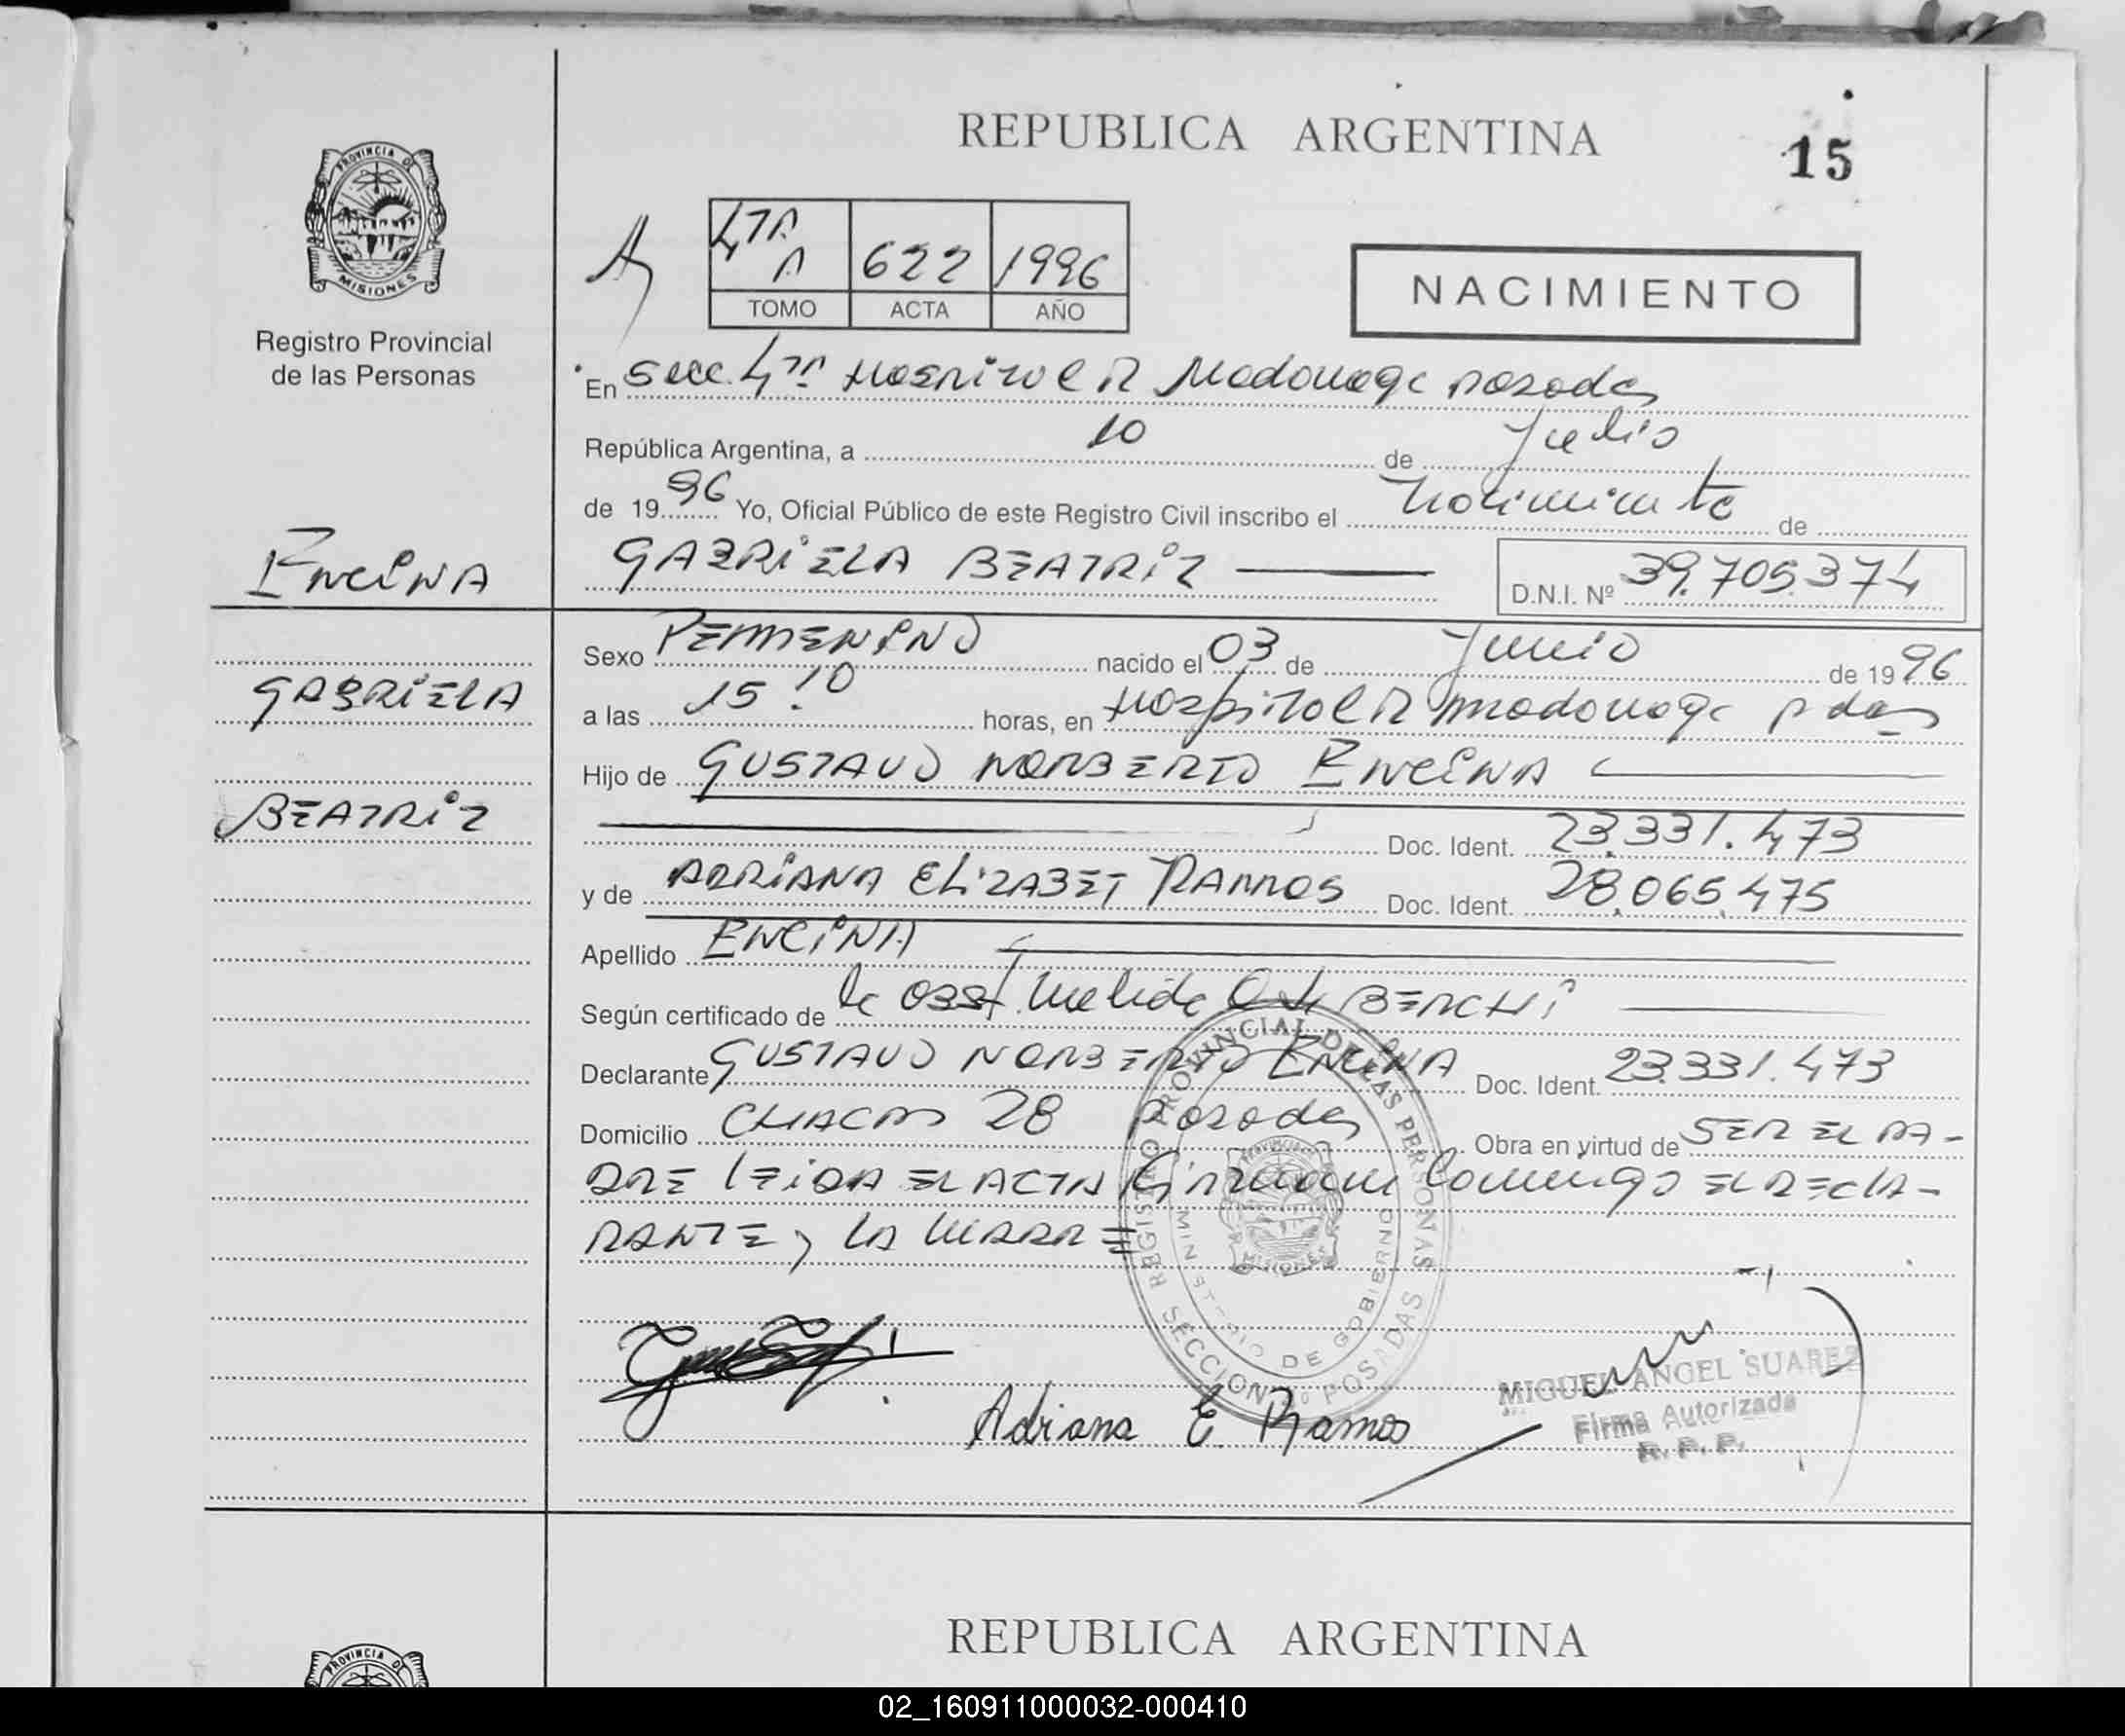 REPUBLICA ARGENTINA
15
PROVINCIA DE
MISIONES
Registro Provincial
de las Personas
4TA A 622 1996
TOMO ACTA AÑO
NACIMIENTO
En Secc. 4TA Hospital R Madariaga Posadas
República Argentina, a 10 de Julio
de 1996 Yo, Oficial Público de este Registro Civil inscribo el Nacimiento de
ENCINA
GABRIELA BEATRIZ
D.N.I. Nº 39.705.374
Sexo FEMENINO nacido el 03 de Junio de 1996
GABRIELA
a las 15:10 horas, en Hospital R Madariaga Pdas
Hijo de GUSTAVO NORBERTO ENCINA
BEATRIZ
Doc. Ident. 23.331.473
y de ADRIANA ELIZABET RAMOS Doc. Ident. 28.065.475
Apellido ENCINA
Según certificado de la obst. BERCHI
Declarante GUSTAVO NORBERTO ENCINA Doc. Ident. 23.331.473
Domicilio CHACAS 28 Posadas Obra en virtud de SER EL PA-
DRE LEIDA EL ACTA Firman Conmigo EL DECLA-
RANTE y LA MADRE
REGISTRO PROVINCIAL DE LAS PERSONAS
MINISTERIO DE GOBIERNO
SECCION POSADAS
PROVINCIA
MISIONES
Adriana E. Ramos
MIGUEL ANGEL SUAREZ
Firma Autorizada
R. P. P.
REPUBLICA ARGENTINA
PROVINCIA DE
02_160911000032-000410